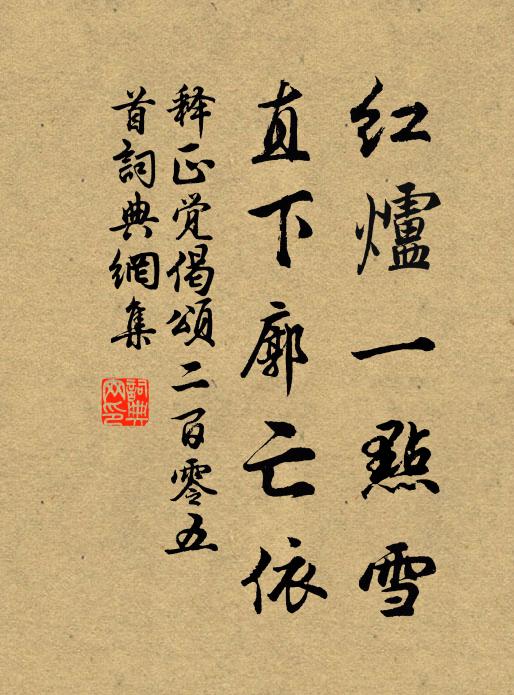 红爐一點雪
直下廓亡依
释正觉偈頌二百零五
首詞典網集
詞典